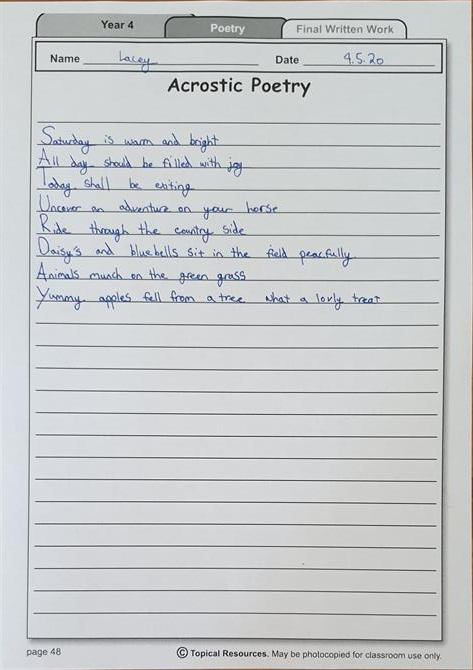 Year 4
Poetry
Final Written Work
Name Lacey Date 9.5.20
Acrostic Poetry
Saturday is warm and bright
All day should be filled with joy
Today shall be exiting
Uncover an adventure on your horse
Ride through the country side
Daisy's and bluebells sit in the field peacfully
Animals munch on the green grass
Yummy apples fell from a tree what a lovly treat
page 48
© Topical Resources. May be photocopied for classroom use only.